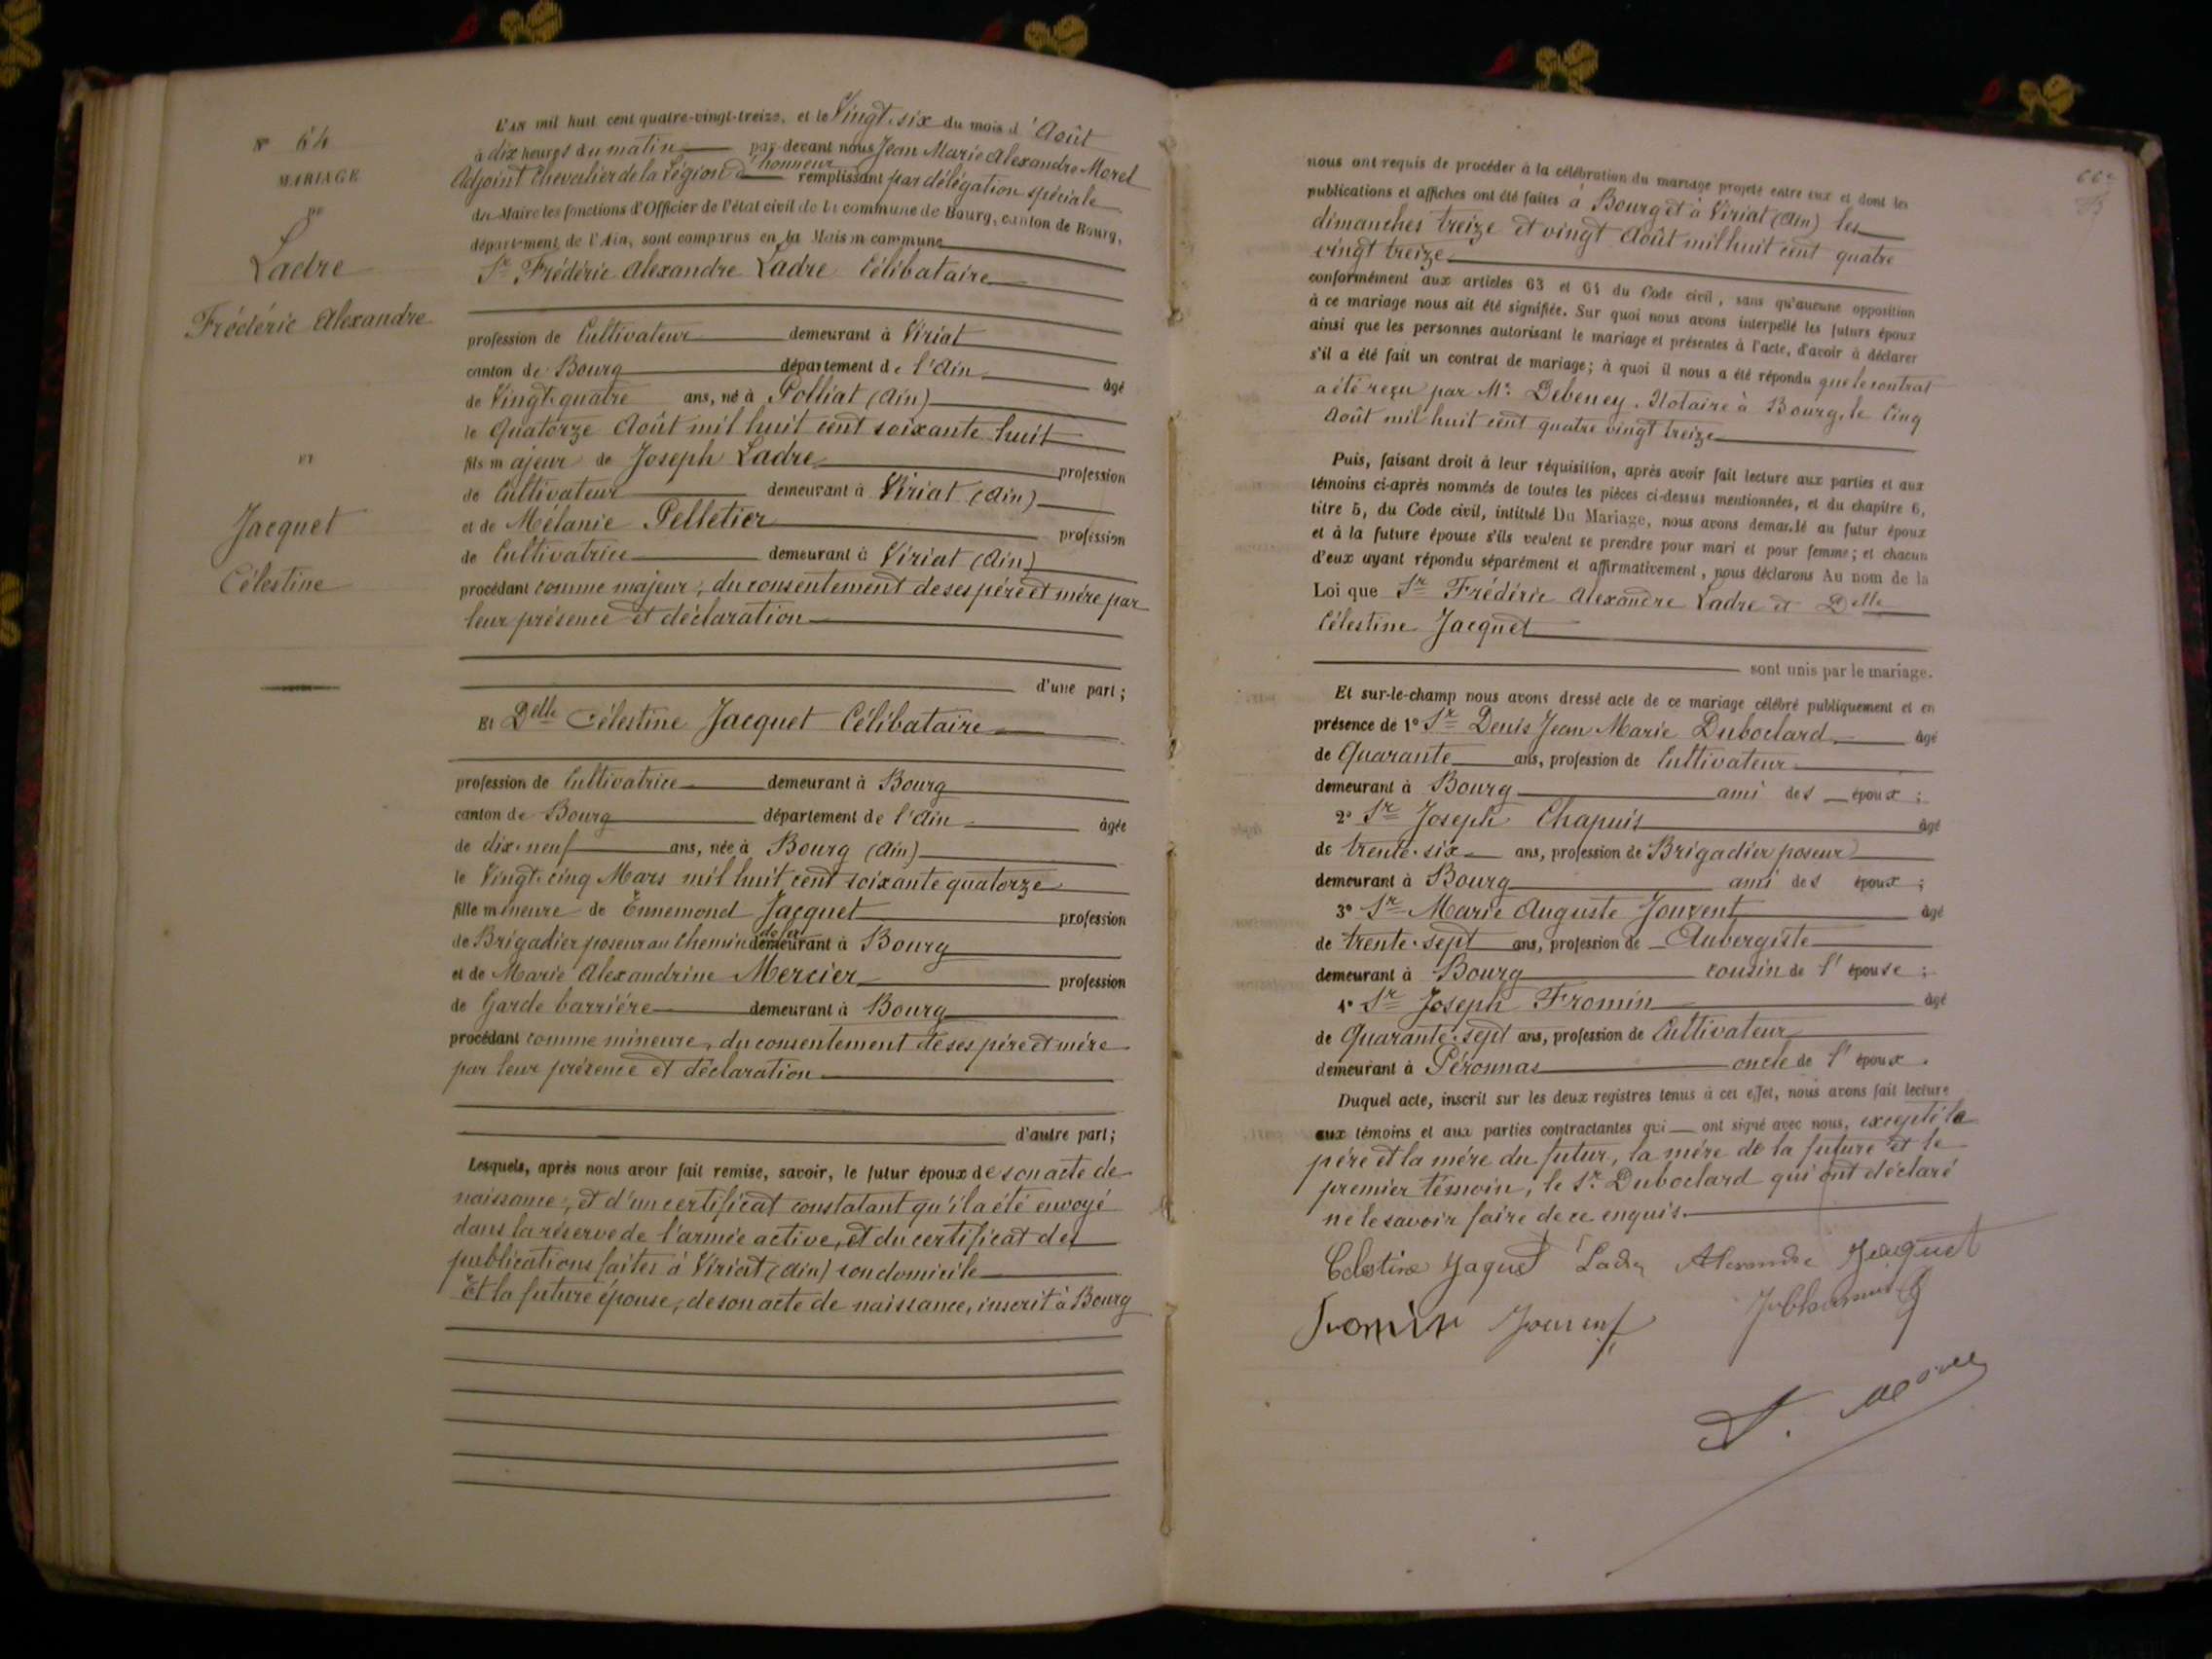 N° 64
MARIAGE
DE
Ladre
Frédéric Alexandre
ET
Jacquet
Célestine
L'AN mil huit cent quatre-vingt-treize, et le Vingt-six du mois d'Août
à dix heures du matin par-devant nous Jean Marie Alexandre Morel
Adjoint Chevalier de la Légion d'honneur remplissant par délégation spéciale
du Maire les fonctions d'Officier de l'état civil de la commune de Bourg, canton de Bourg,
département de l'Ain, sont comparus en la Maison commune
Sr Frédéric Alexandre Ladre Célibataire
profession de Cultivateur demeurant à Viriat
canton de Bourg département de l'Ain âgé
de Vingt-quatre ans, né à Polliat (Ain)
le Quatorze Août mil huit cent soixante huit
fils majeur de Joseph Ladre profession
de Cultivateur demeurant à Viriat (Ain)
et de Mélanie Pelletier profession
de Cultivatrice demeurant à Viriat (Ain)
procédant comme majeur, du consentement de ses père et mère par
leur présence et déclaration
d'une part;
Et Delle Célestine Jacquet Célibataire
profession de Cultivatrice demeurant à Bourg
canton de Bourg département de l'Ain âgée
de dix-neuf ans, née à Bourg (Ain)
le Vingt-cinq Mars mil huit cent soixante quatorze
fille mineure de Ennemond Jacquet profession
de Brigadier poseur au Chemin de fer demeurant à Bourg
et de Marie Alexandrine Mercier profession
de Garde barrière demeurant à Bourg
procédant comme mineure, du consentement de ses père et mère
par leur présence et déclaration
d'autre part;
Lesquels, après nous avoir fait remise, savoir, le futur époux de son acte de
naissance, et d'un certificat constatant qu'il a été envoyé
dans la réserve de l'armée active, et du certificat des
publications faites à Viriat (Ain) son domicile
Et la future épouse, de son acte de naissance, inscrit à Bourg
nous ont requis de procéder à la célébration du mariage projeté entre eux et dont les
publications et affiches ont été faites à Bourg et à Viriat (Ain) les
dimanches treize et vingt Août mil huit cent quatre
vingt treize
conformément aux articles 63 et 64 du Code civil, sans qu'aucune opposition
à ce mariage nous ait été signifiée. Sur quoi nous avons interpellé les futurs époux
ainsi que les personnes autorisant le mariage et présentes à l'acte, d'avoir à déclarer
s'il a été fait un contrat de mariage; à quoi il nous a été répondu que le contrat
a été reçu par Me Debeney, Notaire à Bourg, le Cinq
Août mil huit cent quatre vingt treize
Puis, faisant droit à leur réquisition, après avoir fait lecture aux parties et aux
témoins ci-après nommés de toutes les pièces ci-dessus mentionnées, et du chapitre 6,
titre 5, du Code civil, intitulé Du Mariage, nous avons demandé au futur époux
et à la future épouse s'ils veulent se prendre pour mari et pour femme; et chacun
d'eux ayant répondu séparément et affirmativement, nous déclarons Au nom de la
Loi que Sr Frédéric Alexandre Ladre et Delle
Célestine Jacquet
sont unis par le mariage.
Et sur-le-champ nous avons dressé acte de ce mariage célébré publiquement et en
présence de 1° Sr Denis Jean Marie Duboclard âgé
de Quarante ans, profession de Cultivateur
demeurant à Bourg ami des époux;
2° Sr Joseph Chapuis âgé
de trente-six ans, profession de Brigadier poseur
demeurant à Bourg ami des époux;
3° Sr Marie Auguste Jouvent âgé
de trente-sept ans, profession de Aubergiste
demeurant à Bourg cousin de l'épouse;
4° Sr Joseph Fromin âgé
de Quarante-sept ans, profession de Cultivateur
demeurant à Péronnas oncle de l'époux.
Duquel acte, inscrit sur les deux registres tenus à cet effet, nous avons fait lecture
aux témoins et aux parties contractantes qui ont signé avec nous, excepté le
père et la mère du futur, la mère de la future et le
premier témoin, le Sr Duboclard qui ont déclaré
ne le savoir faire de ce enquis.
Celestine Jaquet Ladre Alexandre Jacquet
Fromin Jouvent